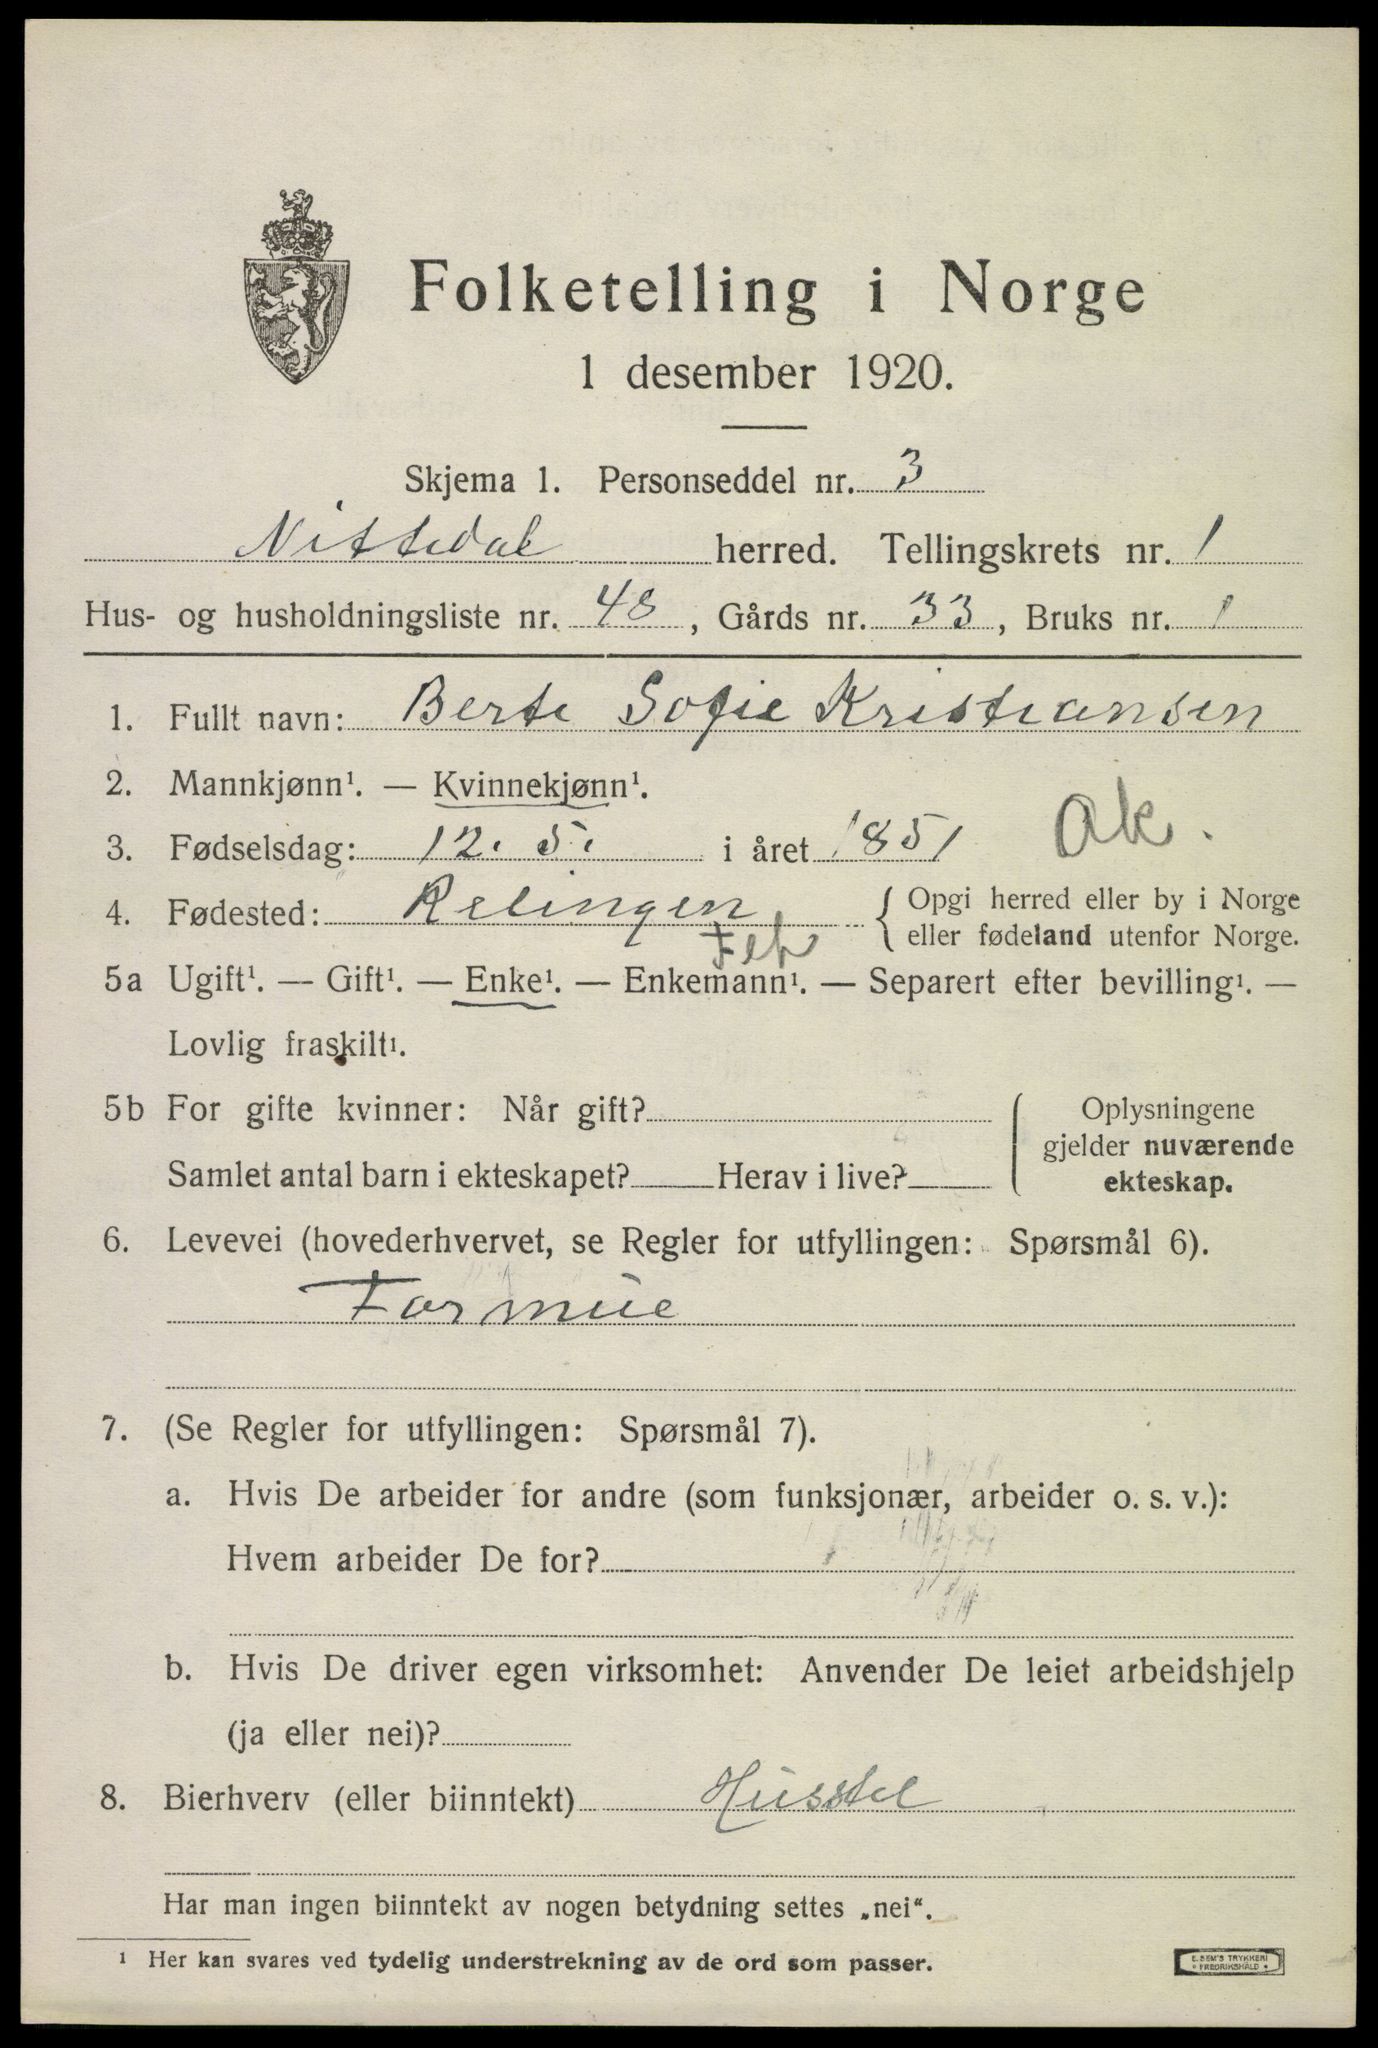 Folketelling i Norge
1 desember 1920.
Skjema 1. Personseddel nr. 3
Nittedal herred. Tellingskrets nr. 1
Hus- og husholdningsliste nr. 48, Gårds nr. 33, Bruks nr. 1
1. Fullt navn: Berte Sofie Kristiansen
2. Mannkjønn¹. — Kvinnekjønn¹.
3. Fødselsdag: 12. 5. i året 1851 Ak.
4. Fødested: Relingen { Opgi herred eller by i Norge
eller fødeland utenfor Norge.
5a Ugift¹. — Gift¹. — Enke¹. — Enkemann¹. — Separert efter bevilling¹. —
Lovlig fraskilt¹.
5b For gifte kvinner: Når gift? { Oplysningene
gjelder nuværende
Samlet antal barn i ekteskapet? Herav i live? ekteskap.
6. Levevei (hovederhvervet, se Regler for utfyllingen: Spørsmål 6).
Formue
7. (Se Regler for utfyllingen: Spørsmål 7).
a. Hvis De arbeider for andre (som funksjonær, arbeider o. s. v.):
Hvem arbeider De for?
b. Hvis De driver egen virksomhet: Anvender De leiet arbeidshjelp
(ja eller nei)?
8. Bierhverv (eller biinntekt) Husstel
Har man ingen biinntekt av nogen betydning settes „nei“.
¹ Her kan svares ved tydelig understrekning av de ord som passer.
E. SEM'S TRYKKERI
• FREDRIKSHALD •